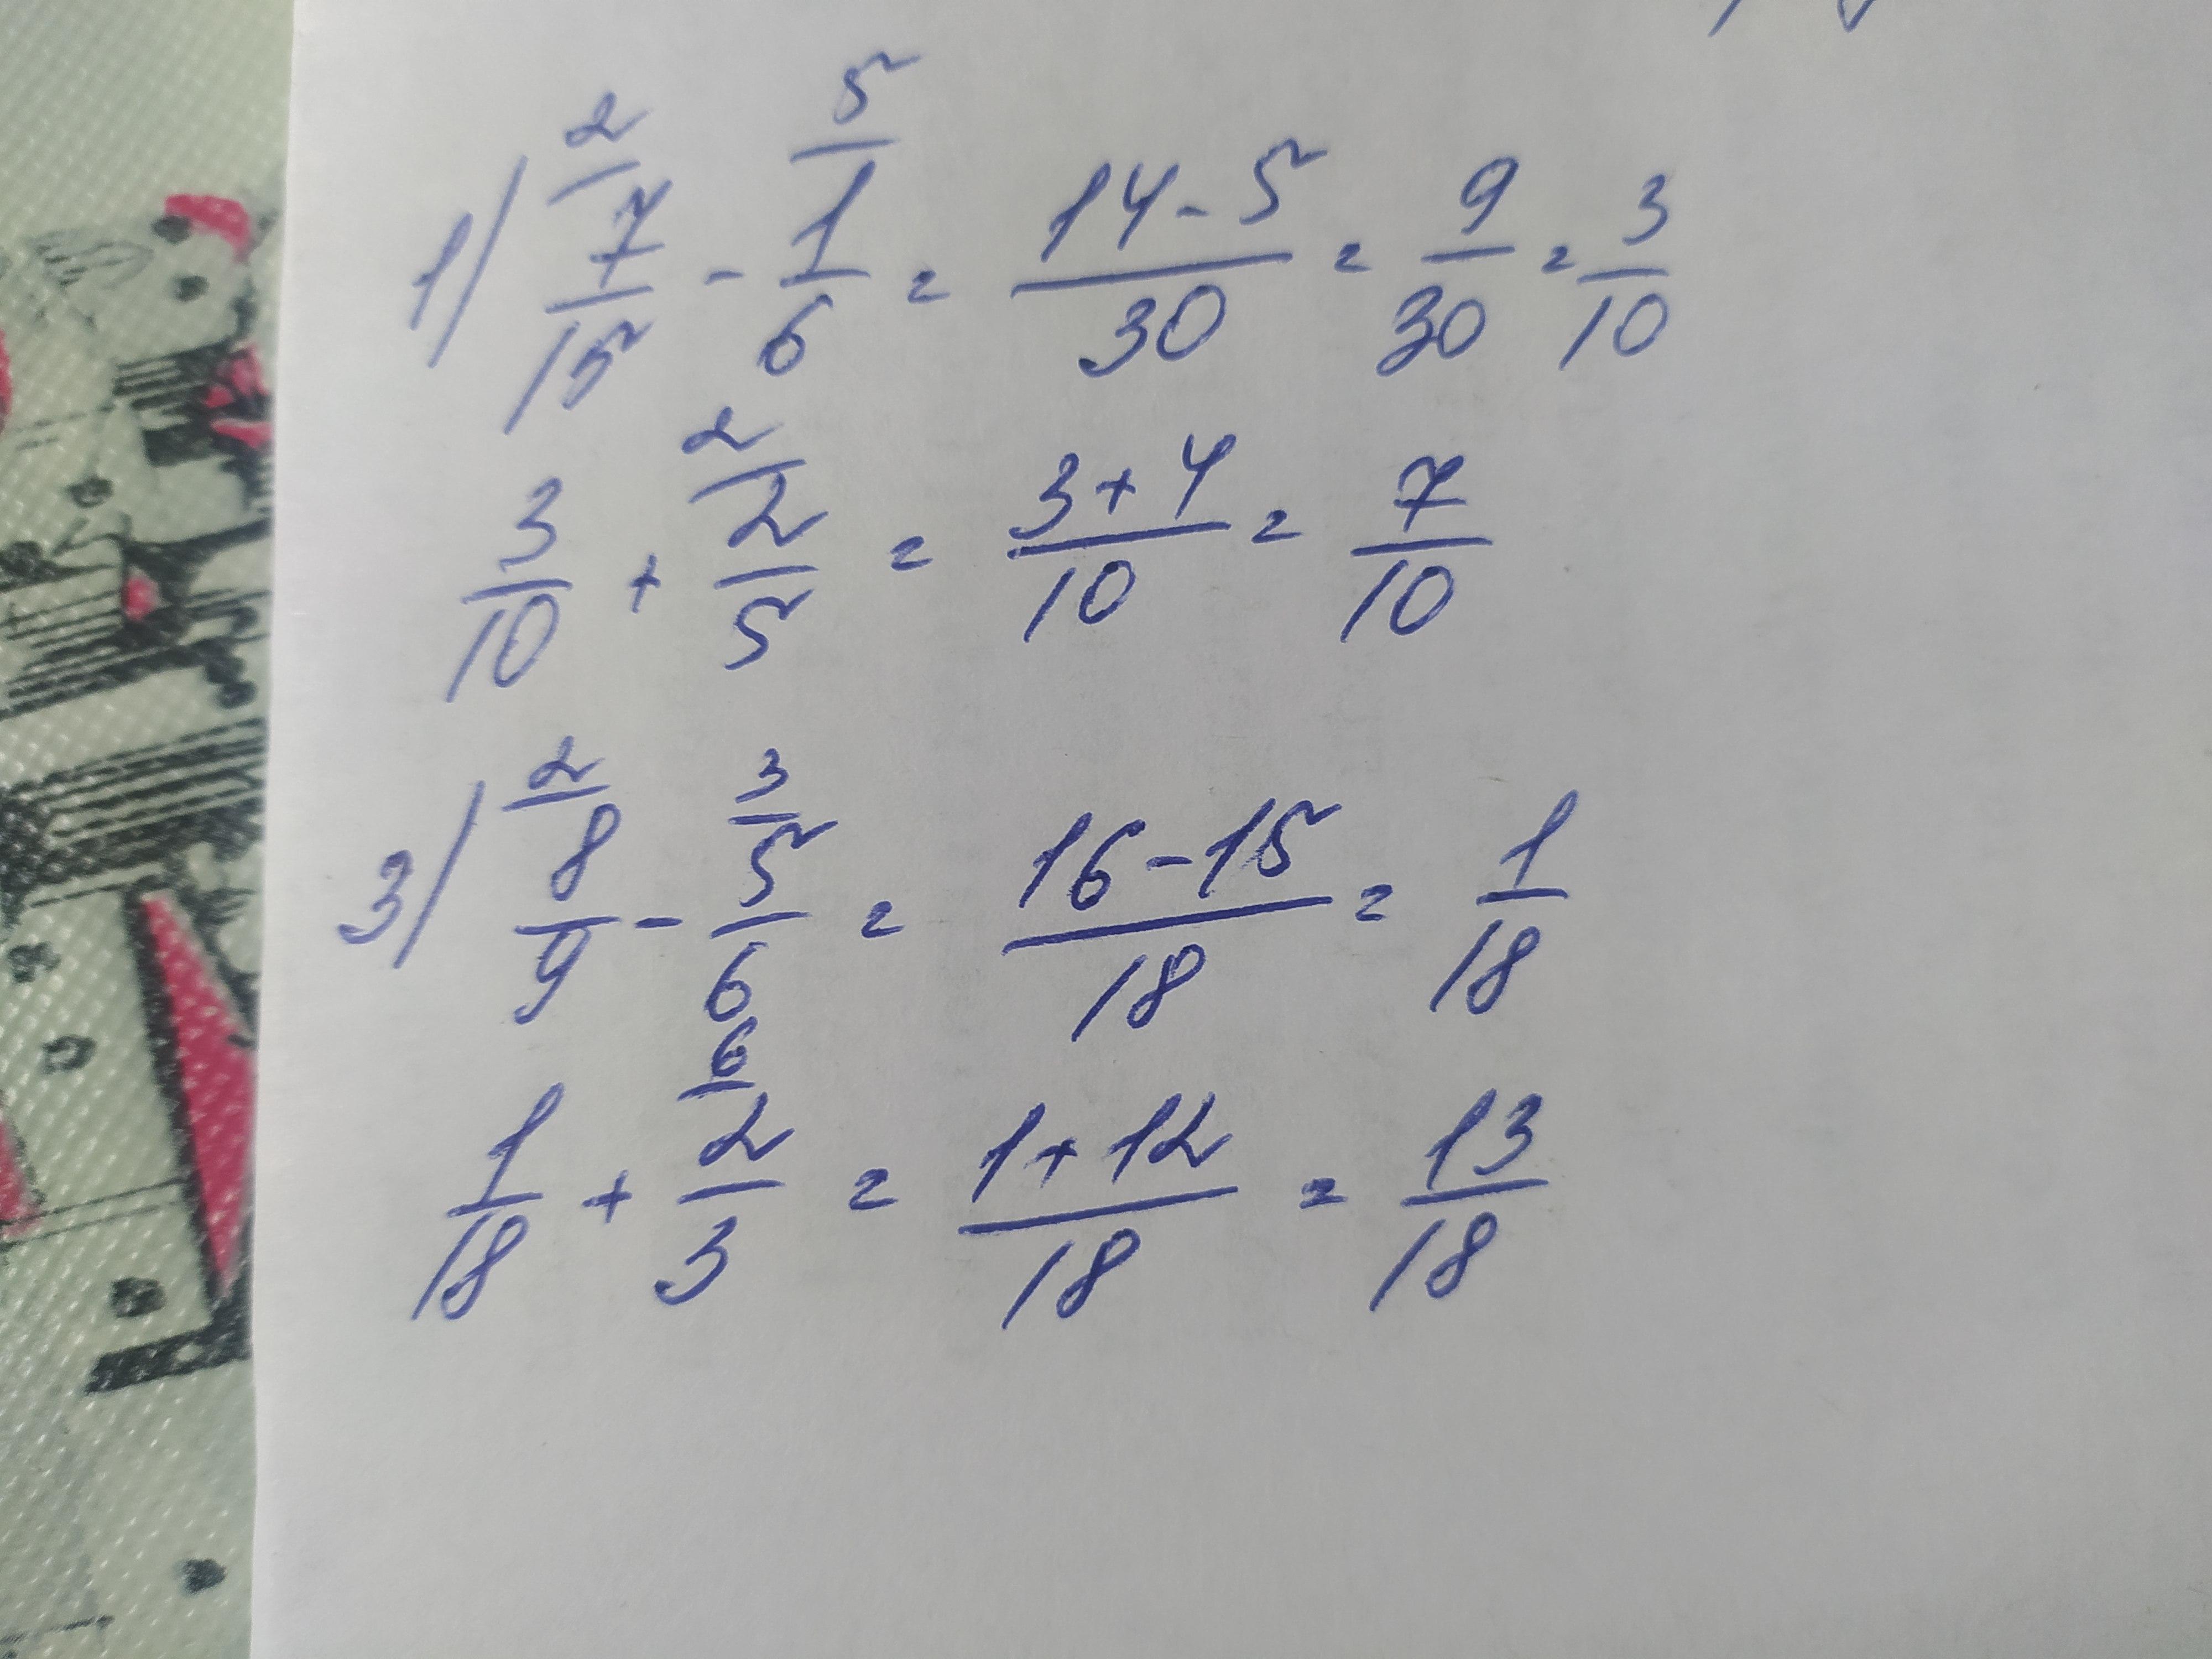 1) 2/ 7/15 - 5/ 1/6 = 14-5/30 = 9/30 = 3/10
3/10 + 2/ 2/5 = 3+4/10 = 7/10
3) 2/ 8/9 - 3/ 5/6 = 16-15/18 = 1/18
1/18 + 6/ 2/3 = 1+12/18 = 13/18